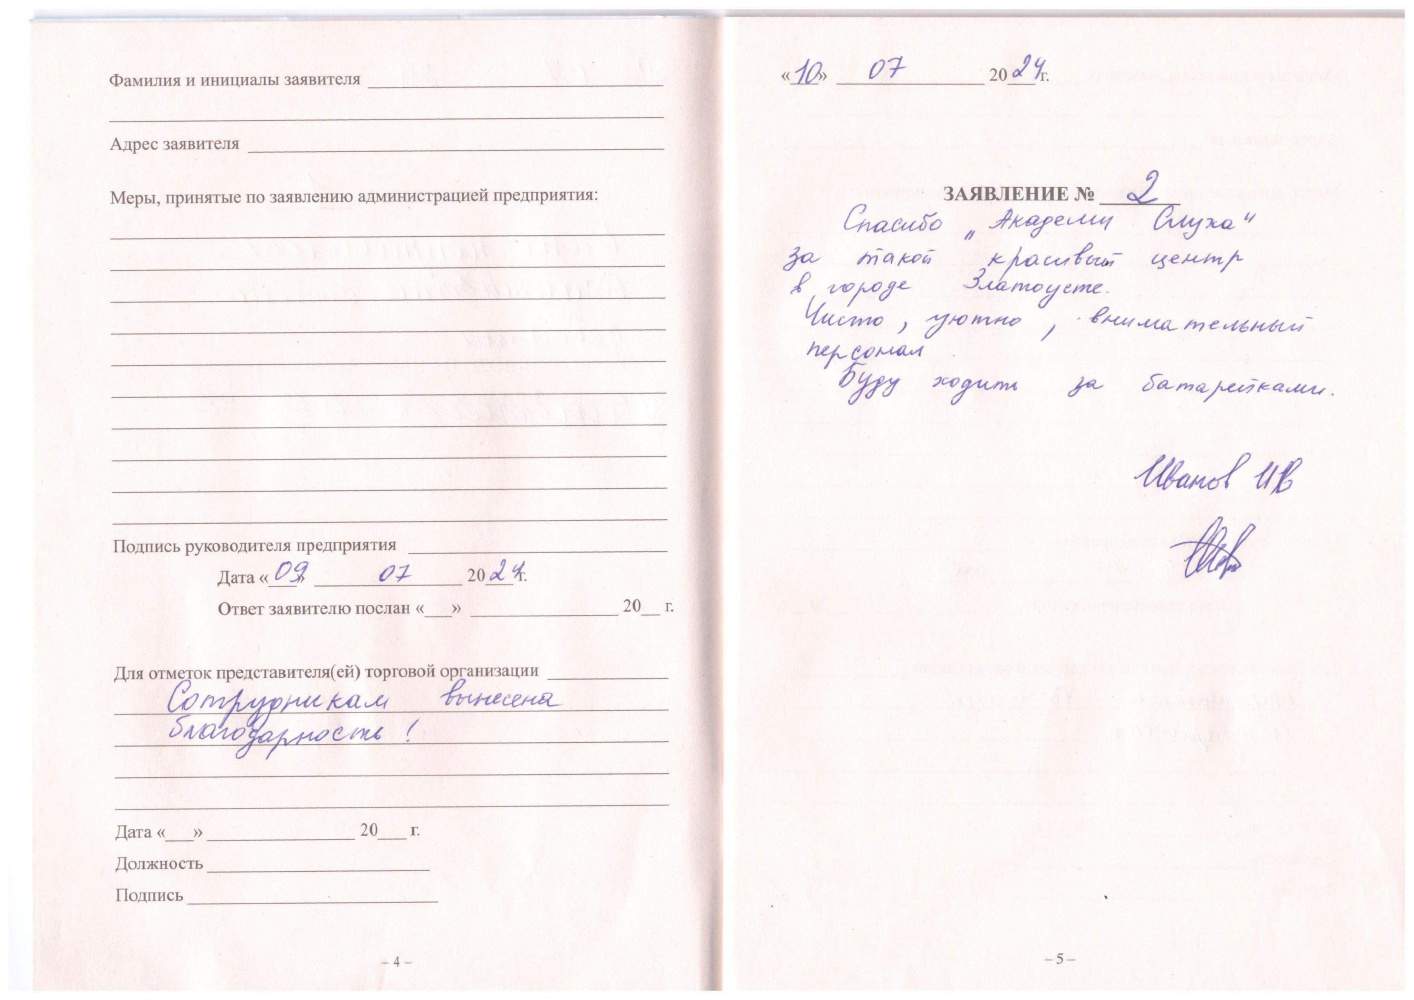 Фамилия и инициалы заявителя
Адрес заявителя
Меры, принятые по заявлению администрацией предприятия:
Подпись руководителя предприятия
Дата «09» 07 2024 г.
Ответ заявителю послан «___» ______ 20__ г.
Для отметок представителя(ей) торговой организации
Сотрудникам вынесена
благодарность!
Дата «___» ______ 20___ г.
Должность
Подпись
– 4 –
«10» 07 2024г.
ЗАЯВЛЕНИЕ № 2
Спасибо „Академи Слуха“
за такой красивый центр
в городе Златоусте.
Чисто, уютно, внимательный
персонал
Буду ходить за батарейками.
Иванов ИВ
– 5 –